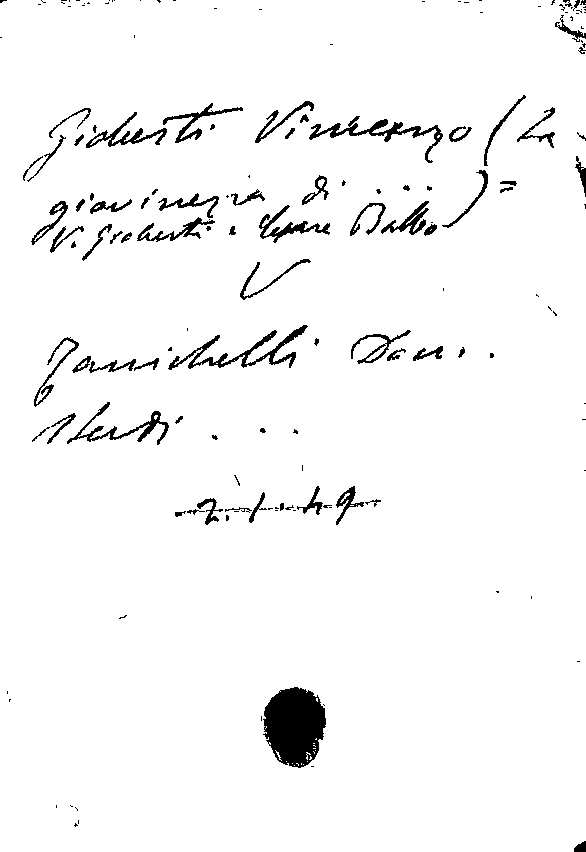 Gioberti Vincenzo (La
giovinezza di ....) =
V. Gioberti e Cesare Balbo
V
Zanichelli Dom..
Studi ...
2.1.49